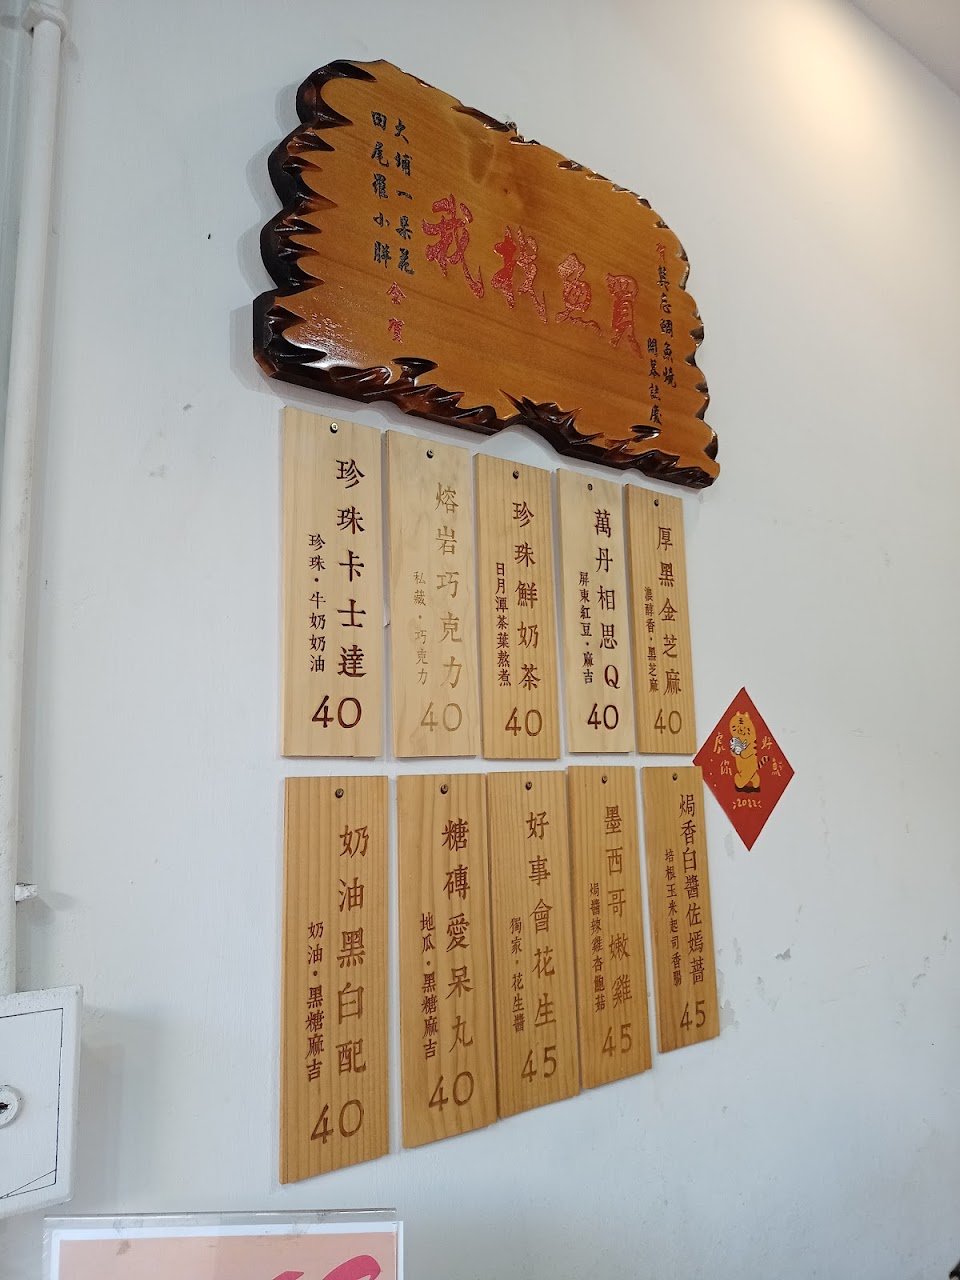 賀 莫忘鯛魚燒
開幕誌慶
我找魚買
大埔一呆花
田尾羅小胖
仝賀
厚黑金芝麻
濃醇香・黑芝麻
40
萬丹相思Q
屏東紅豆・麻吉
40
珍珠鮮奶茶
日月潭茶葉熬煮
40
熔岩巧克力
私藏・巧克力
40
珍珠卡士達
珍珠・牛奶奶油
40
焗香白醬佐嫣薔
培根玉米起司香腸
45
墨西哥嫩雞
焗醬辣雞杏鮑菇
45
好事會花生
獨家・花生醬
45
糖磚愛呆丸
地瓜・黑糖麻吉
40
奶油黑白配
奶油・黑糖麻吉
40